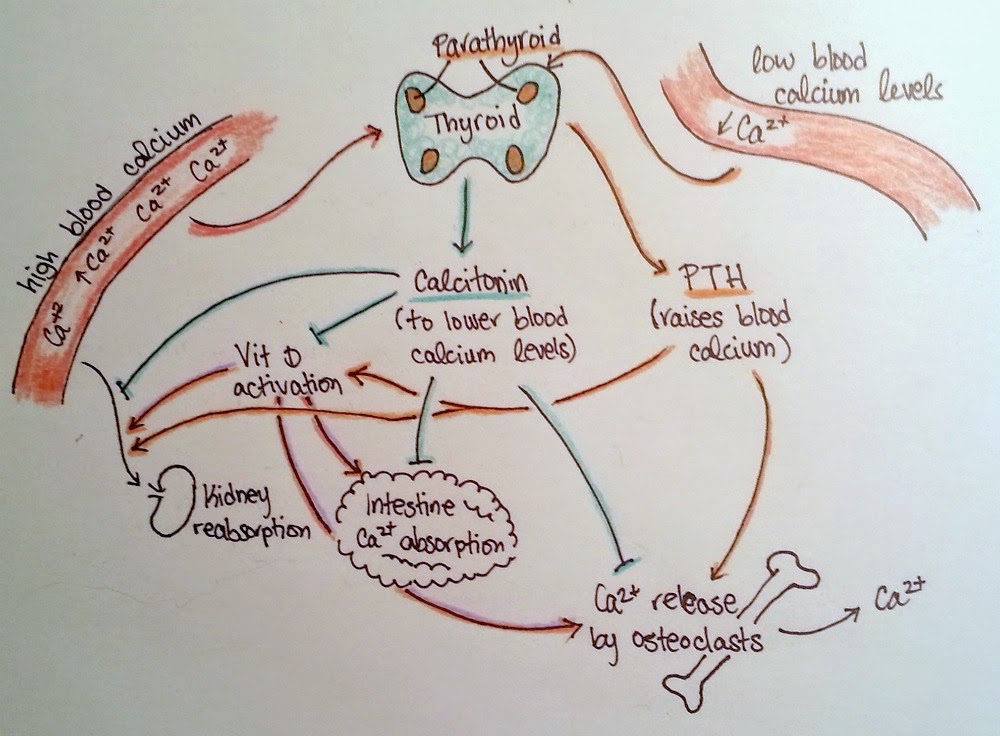 Parathyroid
Thyroid
low blood
calcium levels
↓ Ca²⁺
high blood calcium
Ca⁺² ↑Ca²⁺ Ca²⁺ Ca²⁺
Calcitonin
(to lower blood
calcium levels)
PTH
(raises blood
calcium)
Vit D
activation
Kidney
reabsorption
Intestine
Ca²⁺ absorption
Ca²⁺ release
by osteoclasts
Ca²⁺